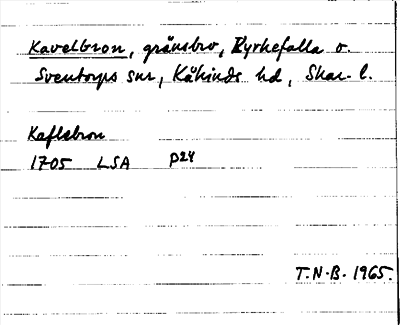 Kavelbron, gränsbro, Kyrkefalla o.
Sventorps snr, Kåkinds hd, Skar. l.
Kaflebron
1705 LSA P24
T.N.B. 1965.